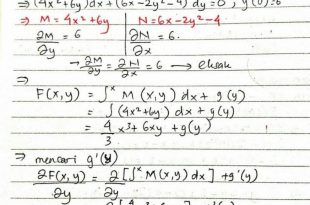 ⇒ (4x²+6y)dx + (6x-2y²-4) dy = 0 , y(0)=6
⇒ M = 4x²+6y | N = 6x-2y²-4
∂M/∂y = 6 | ∂N/∂x = 6.
→ ∂M/∂y = ∂N/∂x = 6 → eksak
⇒
F(x,y) = ∫ˣ M (x,y) dx + g(y)
= ∫ (4x²+6y) dx + g(y)
= 4/3 x³ + 6xy + g(y)
⇒ mencari g'(y)
∂F(x,y)/∂y = ∂/∂y [∫ˣ M(x,y) dx] + g'(y)